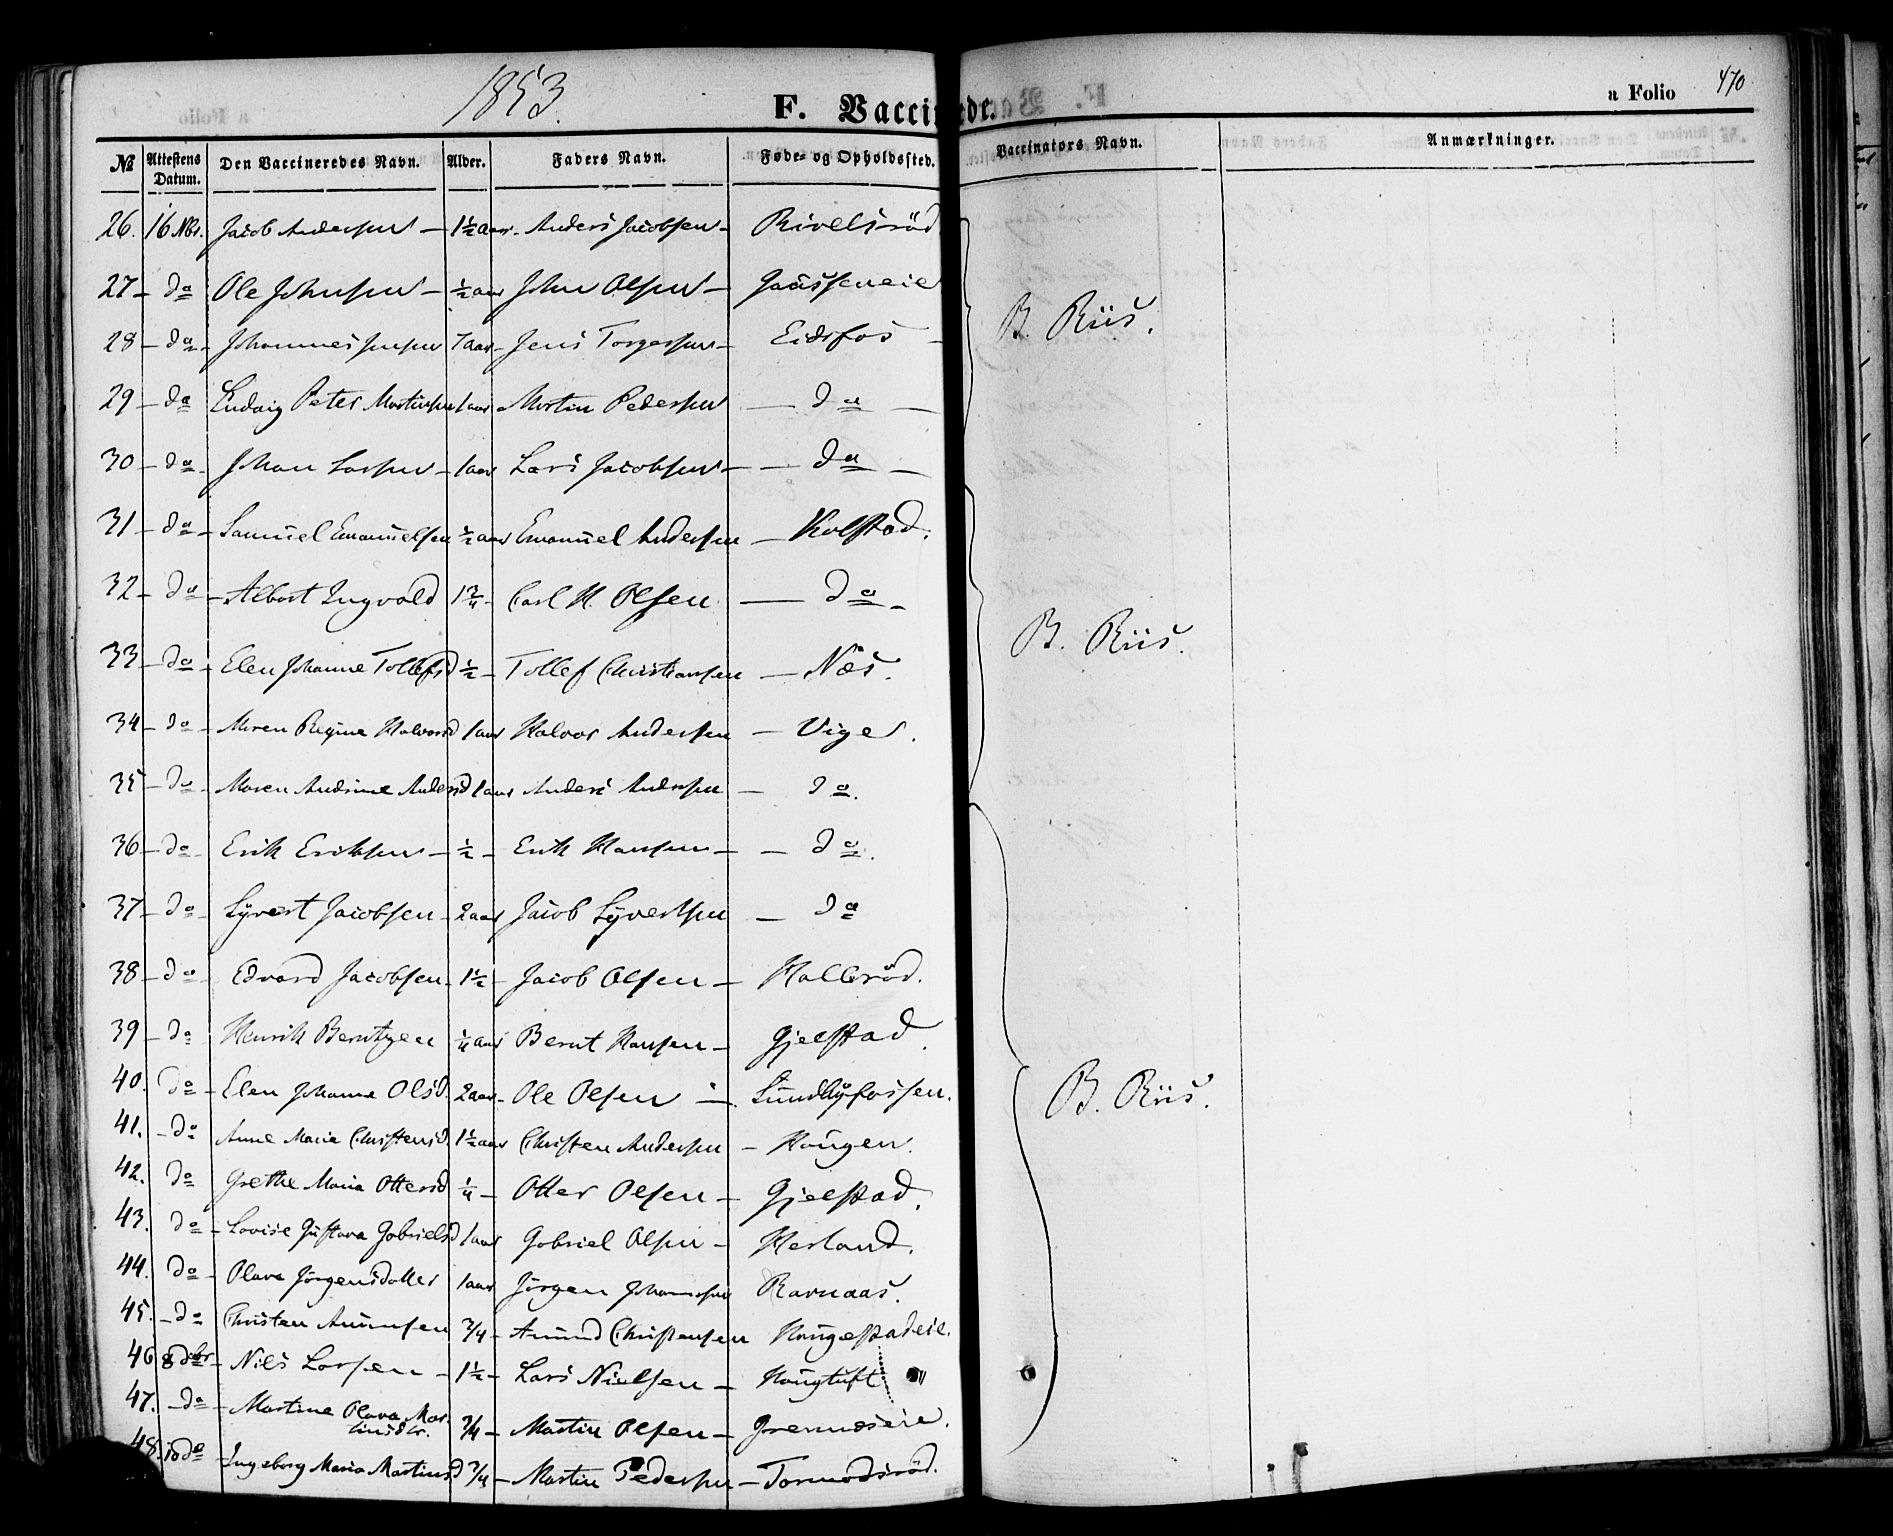 1853.
F. Vaccinerede.
a Folio 470
№ Attestens Datum. Den Vaccineredes Navn. Alder. Faders Navn. Føde- og Opholdssted. Vaccinators Navn. Anmærkninger.
26. 16 Nbr. Jacob Andersen – 1½ aar – Anders Jacobsen – Rivelsröd
27 – do Ole Johnsen – ½ aar John Olsen – Gaasseneie
28 – do – Johannes Jensen 7 aar – Jens Torgersen – Eidsfos –
B. Riis.
29 – do Ludvig Peter Martinsen 1 aar – Martin Pedersen – do –
30 – do – Johan Larsen – 1 aar Lars Jacobsen – – do –
31 – do – Samuel Emanuelsen ½ aar Emanuel Andersen – Kolstad.
32 – do – Albert Ingvald 1¾ – Carl H. Olsen – do –
33 – do – Elen Johanne Tollefsd ½ – Tollef Christiansen – Næs.
B. Riis.
34 – do – Maren Regine Halvorsd 1 aar Halvor Andersen – Viger.
35 – do – Maren Andrine Andersd 1 aar Anders Andersen – do.
36 – do – Erik Eriksen – ½ – Erik Hansen – – do.
37 – do – Syvert Jacobsen – 2 aar Jacob Syvertsen – do
38 – do – Edvard Jacobsen – 1½ – Jacob Olsen – Halleröd.
39 – do Henrik Berntzen ¼ aar Bernt Hansen – Gjelstad.
40. do – Elen Johanne Olsd. 2 aar – Ole Olsen – Sundbyfossen.
B. Riis.
41. – do Anne Maria Christensd. 1½ aar Christen Andersen – Haugen.
42. do Grethe Maria Ottersd ¼ – Otter Olsen – Gjelstad.
43. do – Lovise Gustava Gabrielsd 1 aar Gabriel Olsen – Herland.
44. do – Olava Jörgensdatter 1 aar Jörgen Johannesen Ravnaas.
45. – do Christen Amundsen ¾ – Amund Christensen Haugestadeie.
46 8 Dcbr – Nils Larsen – 1½ – Lars Nielsen – Haugtuft
47. – do – Martine Olava Mar-
tinsdtr. ¾ – Martin Olsen – Grennæseie.
48. 10 do Ingeborg Maria Martinsd ¾ – Martin Pedersen – Tormodsröd.